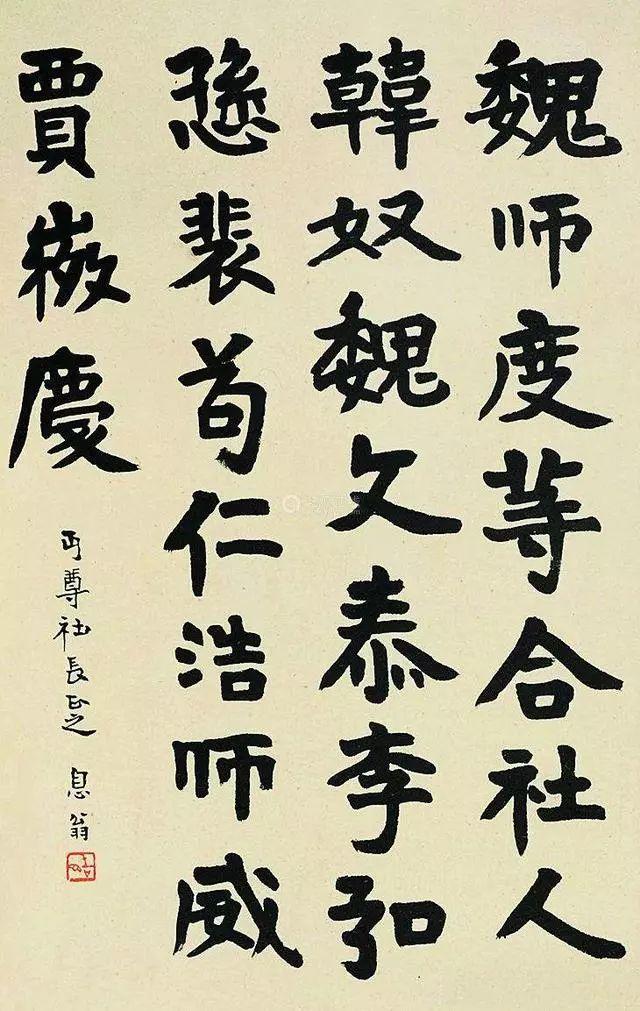 魏师度等合社人
韓奴魏文恭李弘
裴苟仁浩师威
賈慶
丏尊社長正之 息翁